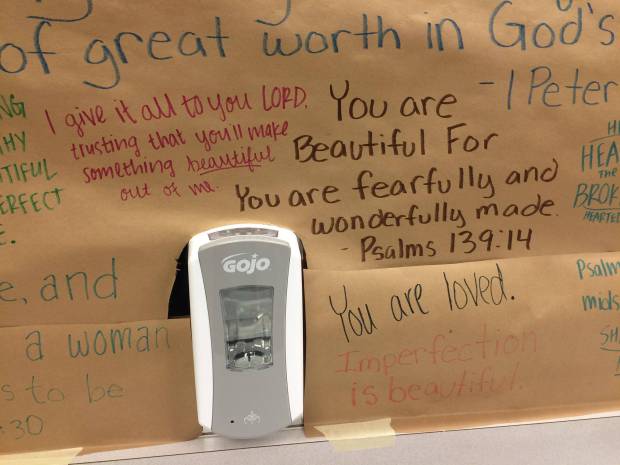 of great worth in God's
- 1 Peter
NG
HY
TIFUL
ERFECT
E.
I give it all to you LORD.
trusting that you'll make
something beautiful
out of me.
You are
Beautiful For
You are fearfully and
wonderfully made.
- Psalms 139:14
HEA
THE
BROK
HEARTED
e, and
a woman
s to be
:30
GOJO
You are loved.
Imperfection
is beautiful.
Psalm
SH